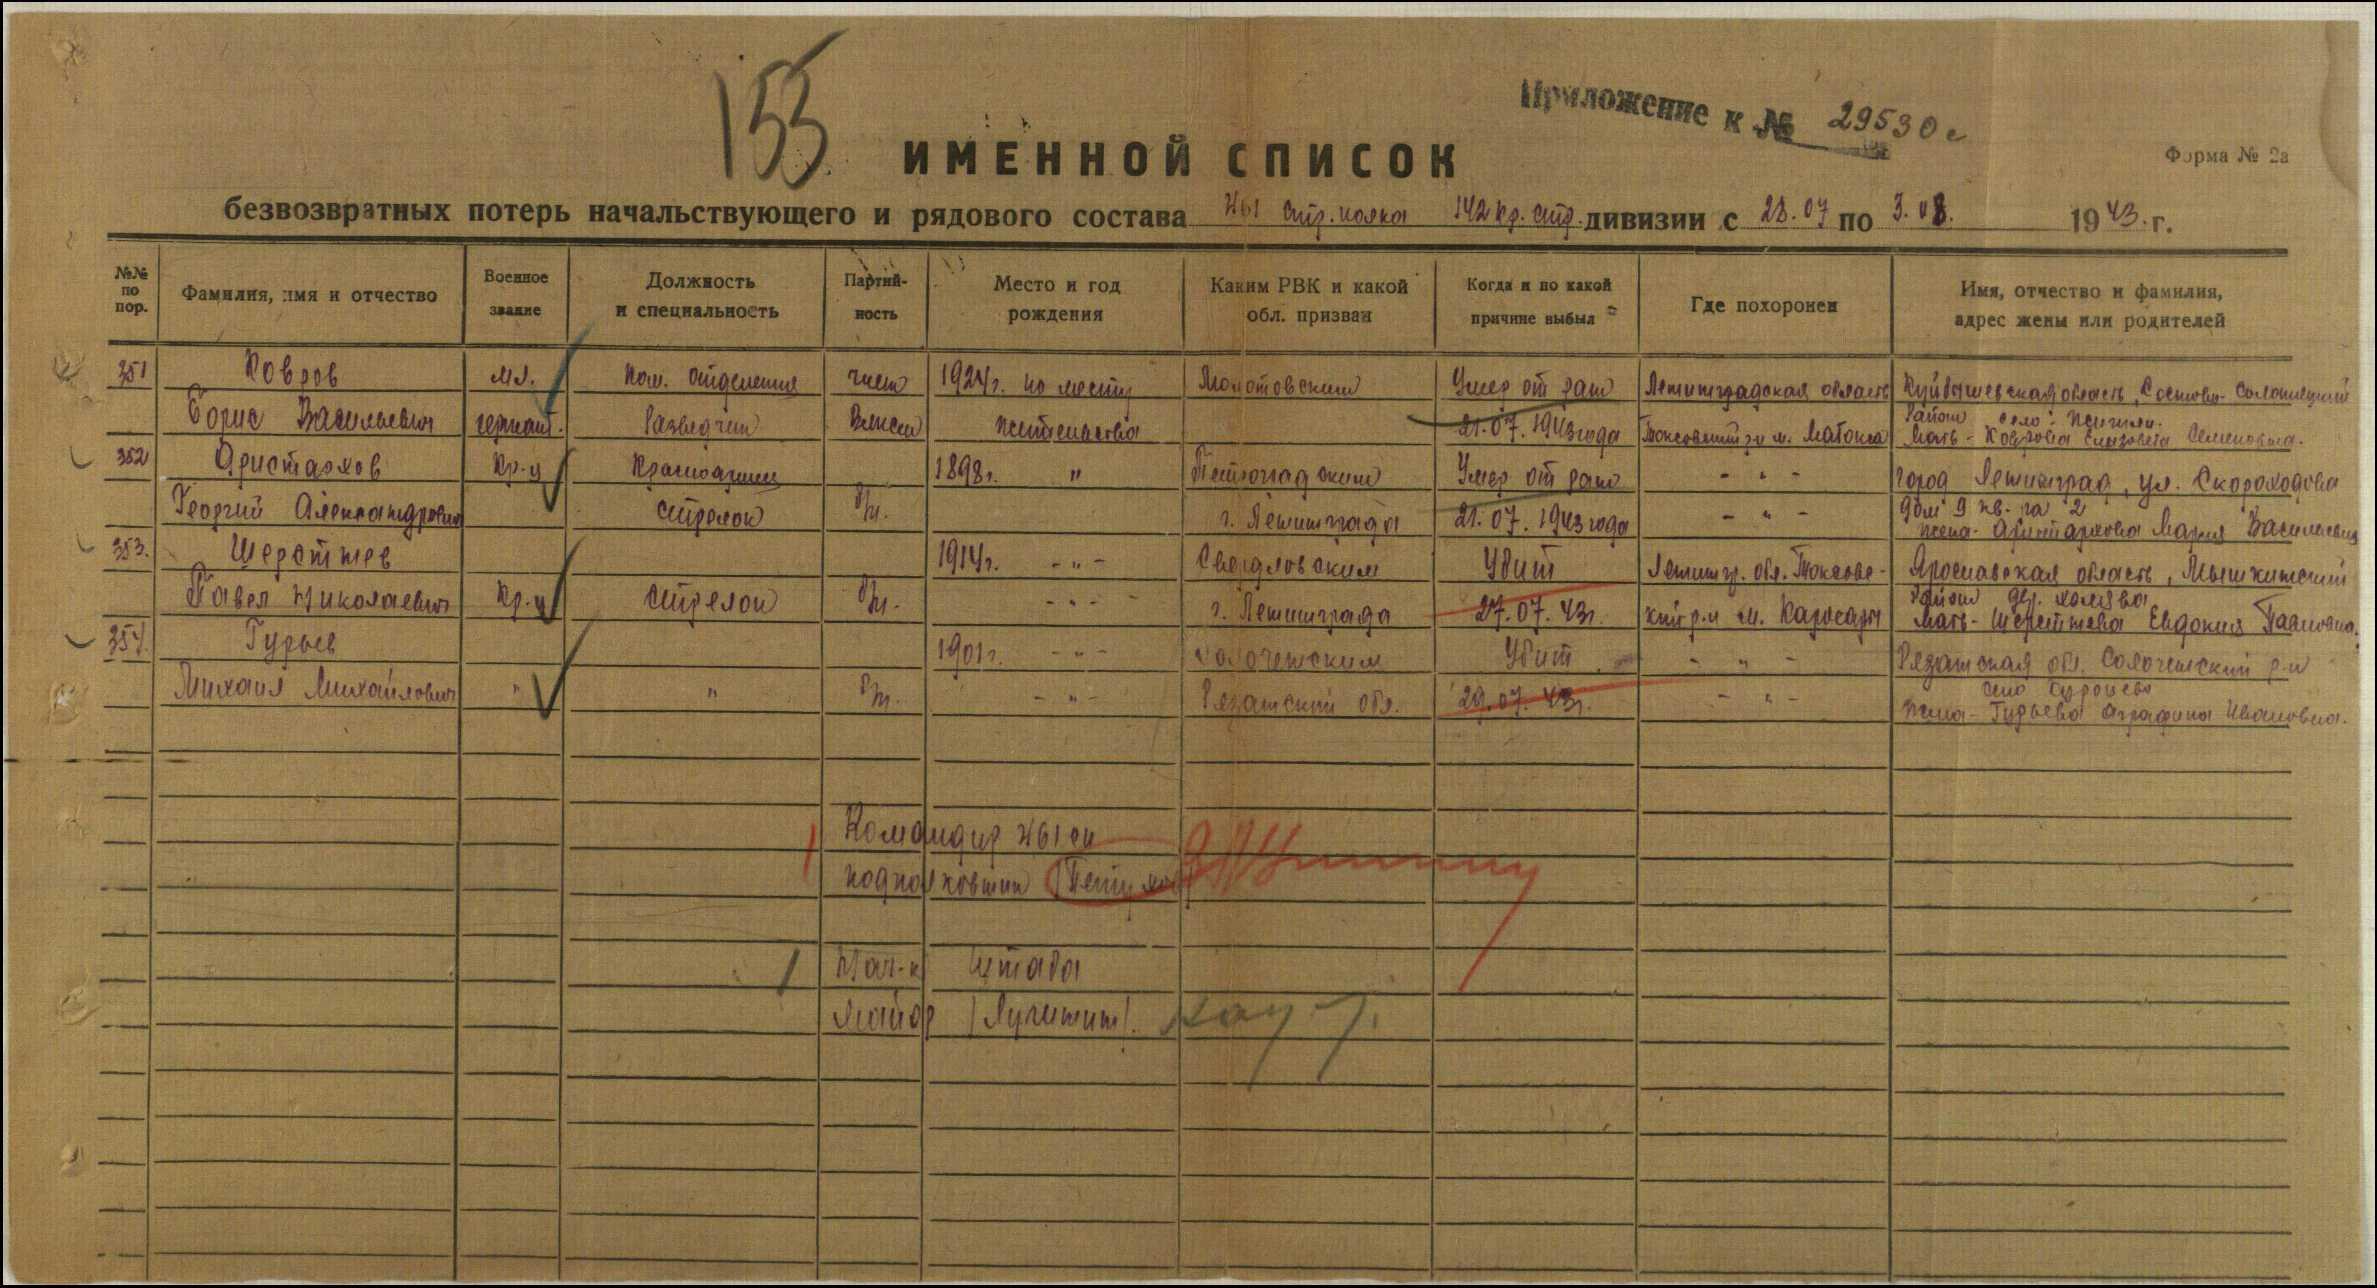 155
Приложение к № 29530с
ИМЕННОЙ СПИСОК
Форма № 2а
безвозвратных потерь начальствующего и рядового состава 461 стр. полка 142 кр. стр. дивизии с 28.07 по 3.08. 1943. г.
№№ по пор. Фамилия, имя и отчество Военное звание Должность и специальность Партий-ность Место и год рождения Каким РВК и какой обл. призван Когда и по какой причине выбыл Где похоронен Имя, отчество и фамилия, адрес жены или родителей
351 Ковров мл. Ком. отделения член 1924г. по месту Молотовским Умер от ран Ленинградская область Куйбышевская область, Сосново-Солонецкий
Борис Васильевич сержант. Разведчик ВЛКСМ жительства 21.07.1943 года Токсовский р-н м. Матокса район село
Мать - Коврова Елизовета Семеновна.
352 Аристархов Кр-ц Красноармеец 1898г. " Петроградским Умер от ран - " - город Ленинград, ул. Скороходова
Георгий Александрович стрелок б/п. г. Ленинграда 21.07.1943 года - " - дом 9 кв-ра 2
жена - Аристархова Мария Васильевна
353. Шерстнев 1914г. - " - Свердловским Убит Ленингр. обл. Токсовс- Ярославская область, Мышкинский
Павел Николаевич Кр-ц стрелок б/п. - " - г. Ленинграда 27.07.43г. кий р-н м. район дер.
Мать - Шерстнева Евдокия Павловна.
354. Гурьев 1901г. - " - Солотчинским Убит - " - Рязанская обл. Солотчинский р-н
Михаил Михайлович " " б/п. - " - Рязанской обл. 29.07.43г. - " - село
жена - Гурьева Аграфина Ивановна.
Командир 461 сп
подполковник (Петухов)
Нач-к штаба
Майор /Лучинин/.